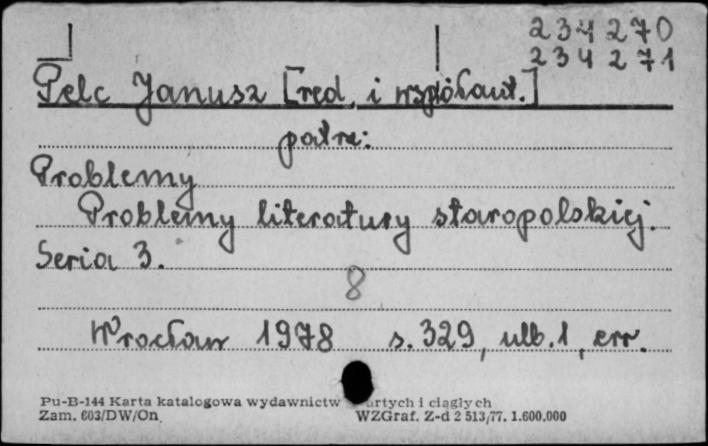 234270
234271
Pelc Janusz [red. i współaut.]
patrz:
Problemy
Problemy literatury staropolskiej.
Seria 3.
8
Wrocław 1978 s. 329, ulb. 1, err.
Pu-B-144 Karta katalogowa wydawnictw artych i ciągłych
Zam. 603/DW/On. WZGraf. Z-d 2 513/77. 1.600.000